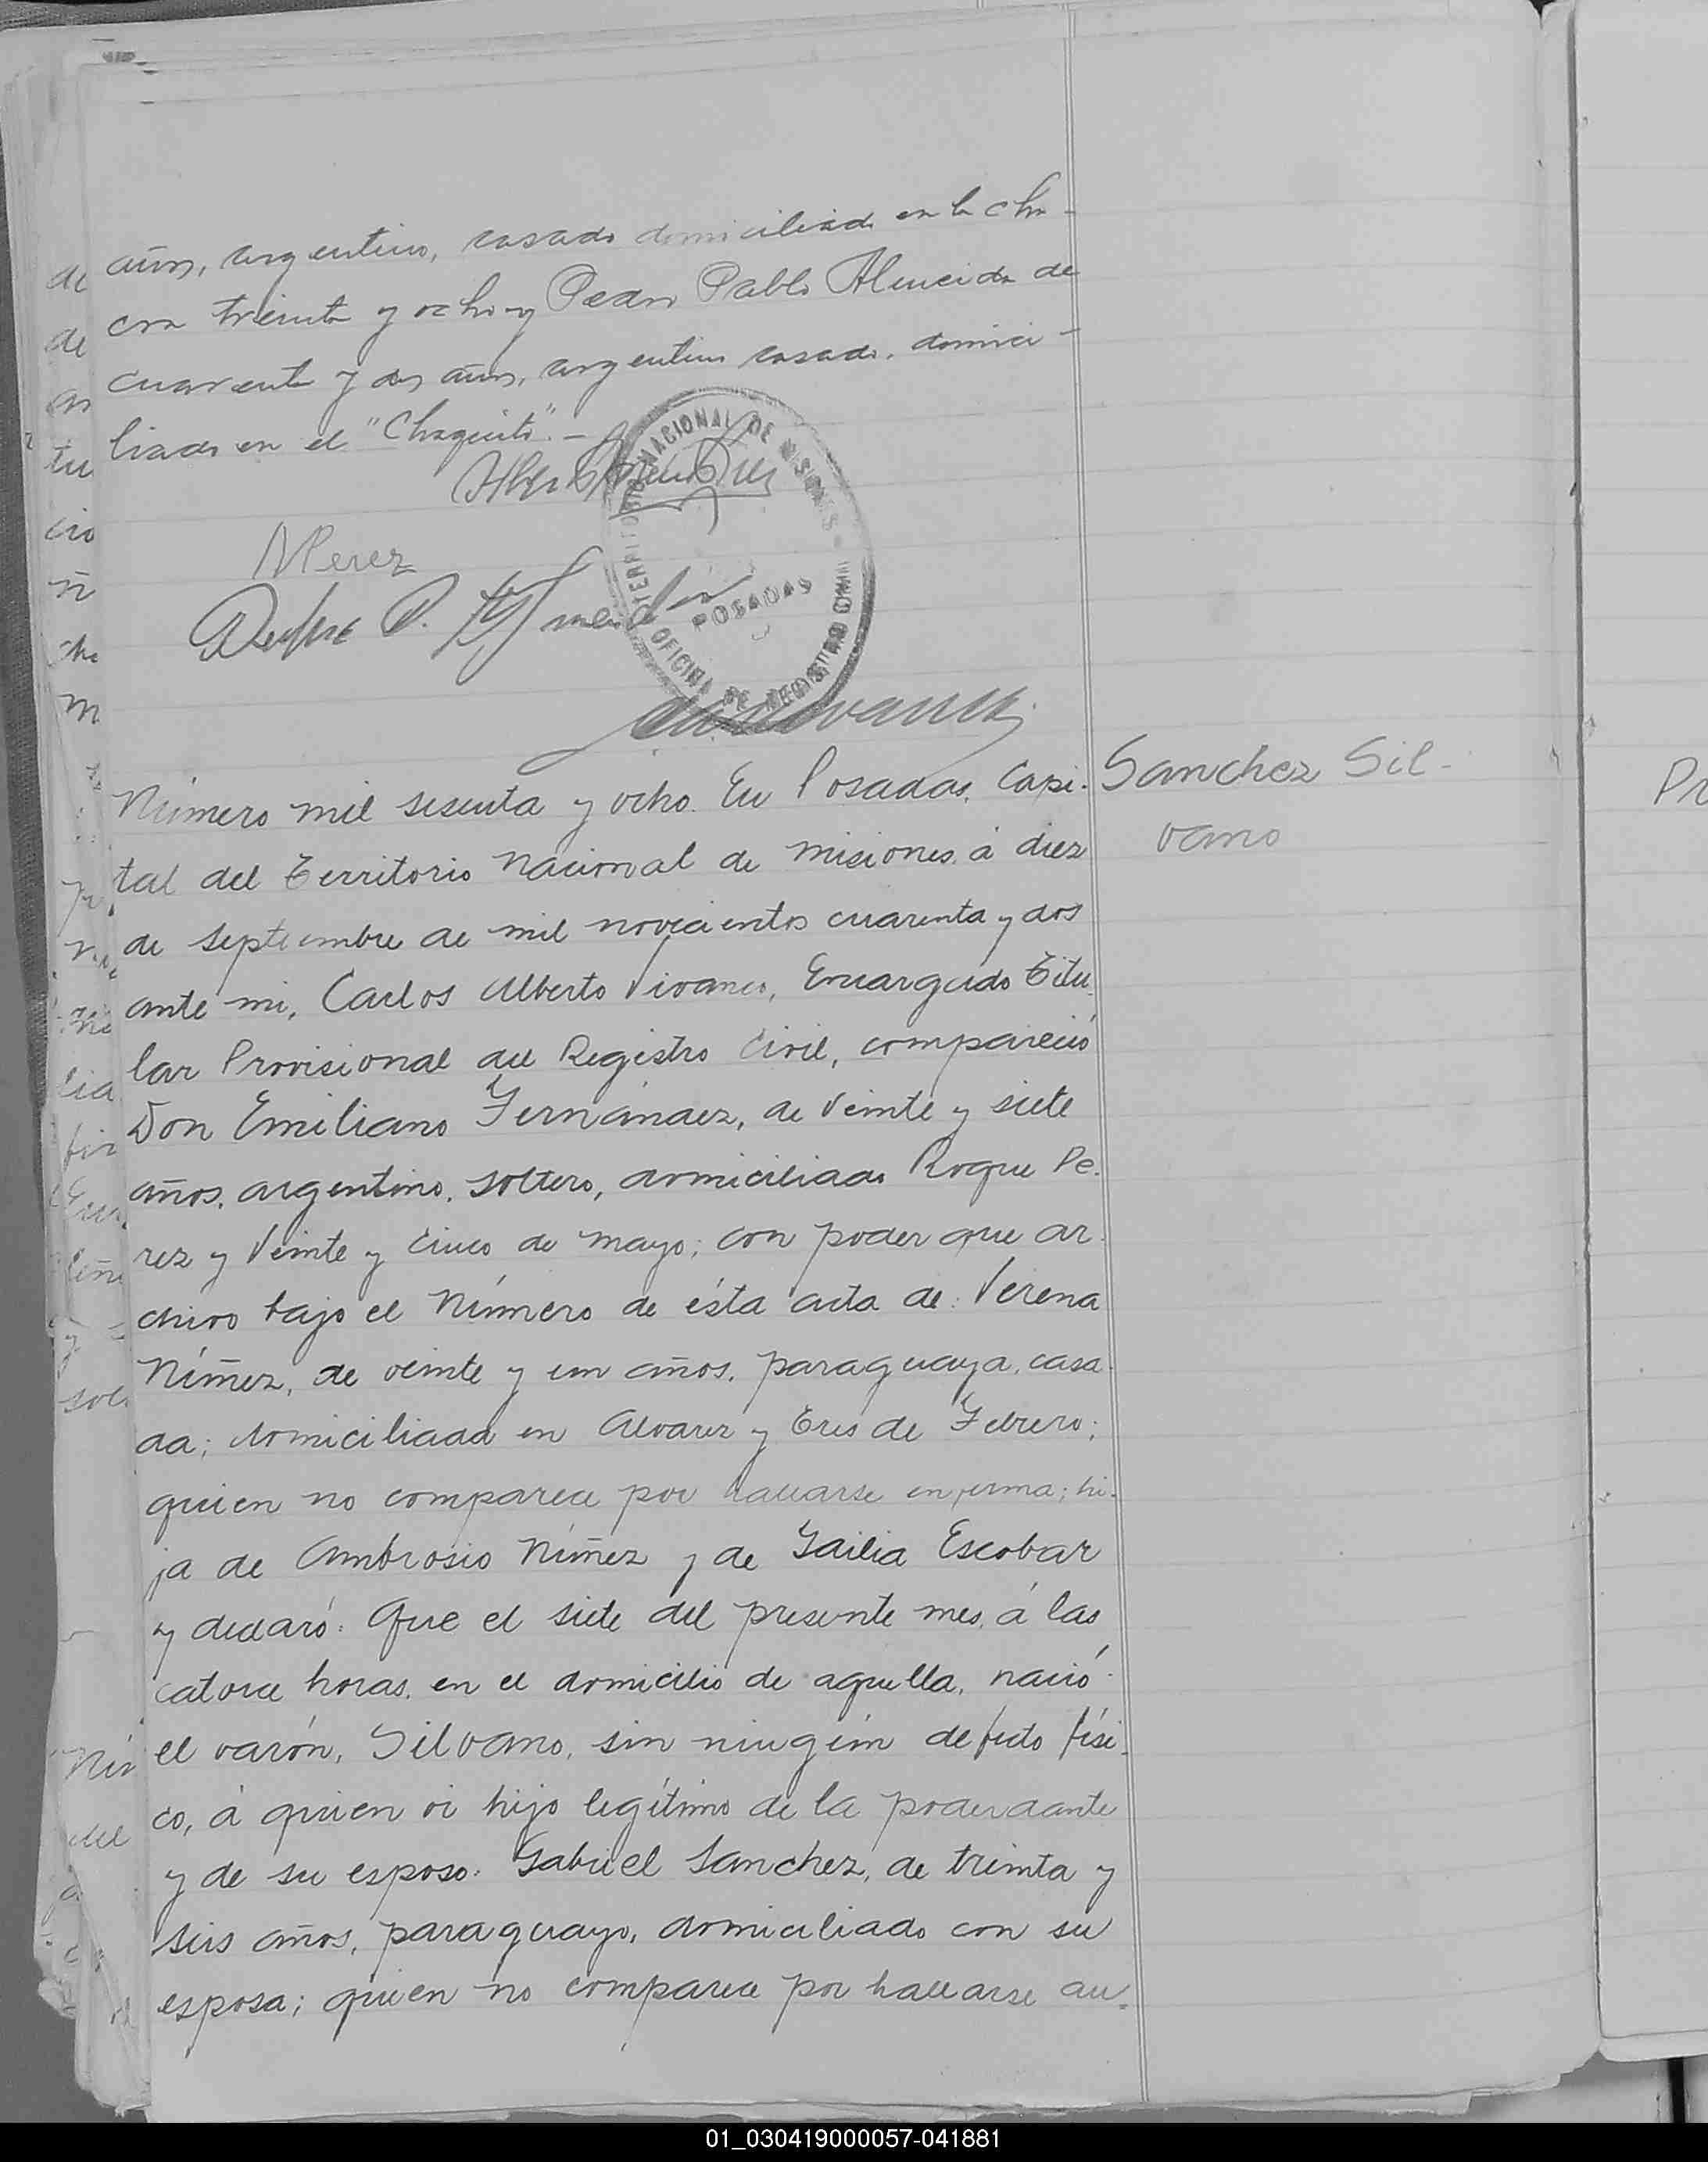 años, argentino, casado domiciliado en la cha-
cra treinta y ocho y Pedro Pablo Almeida de
cuarenta y dos años, argentino casado, domici-
liado en el "Chaquito".-
TERRITORIO NACIONAL DE MISIONES
POSADAS
OFICINA DE REGISTRO CIVIL
MPerez
Pedro P. Almeida
Número mil sesenta y ocho. En Posadas, Capi-
tal del Territorio Nacional de Misiones, á diez
de septiembre de mil novecientos cuarenta y dos
ante mi, Carlos Alberto Vivanco, Encargado Titu-
lar Provisional del Registro Civil, compareció
Don Emiliano Fernández, de veinte y siete
años, argentino, soltero, domiciliado Roque Pe-
rez y Veinte y Cinco de Mayo; con poder que ar-
chivo bajo el Número de ésta acta de: Verena
Núñez, de veinte y un años, paraguaya, casa-
da; domiciliada en Alvarez y Tres de Febrero;
quien no comparece por hallarse enferma; hi-
ja de Ambrosio Núñez y de Escobar
y declaró: Que el siete del presente mes, á las
catorce horas, en el domicilio de aquella, nació
el varón, Silvano, sin ningún defecto físi-
co, á quien ví hijo legítimo de la poderdante
y de su esposo: Gabriel Sanchez, de treinta y
seis años, paraguayo, domiciliado con su
esposa; quien no comparece por hallarse au-
Sanchez Sil-
vano
01_030419000057-041881